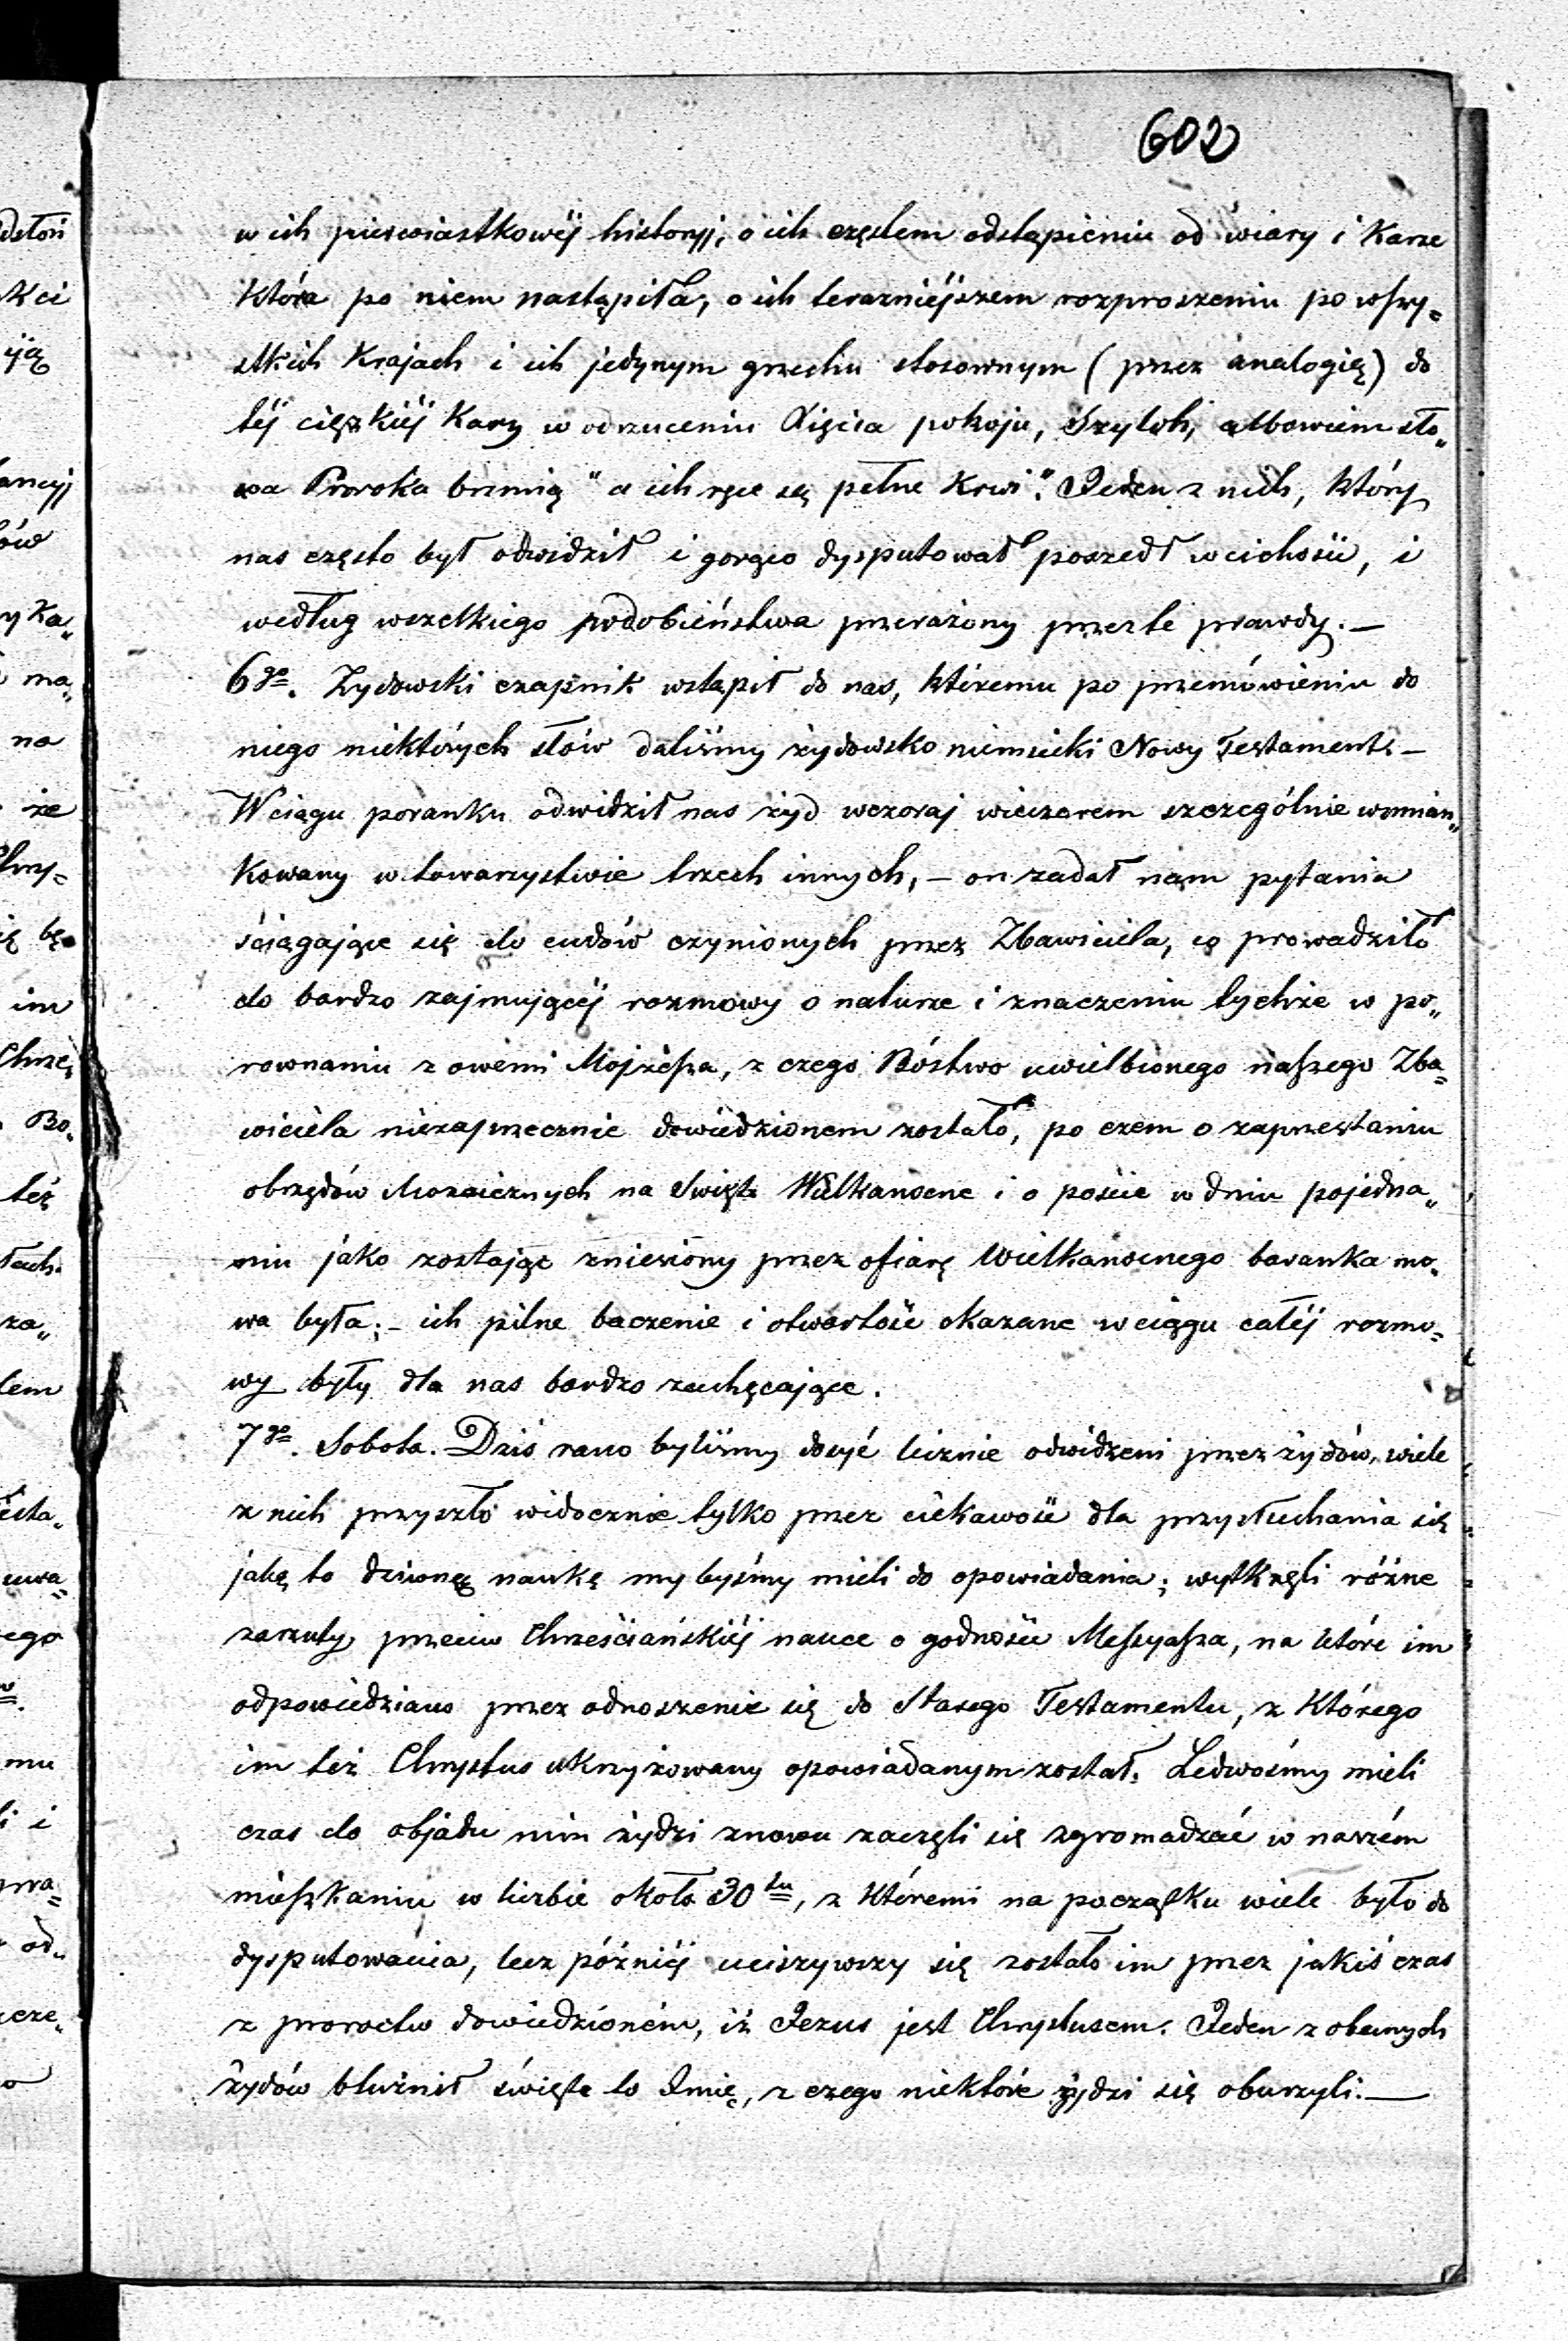 602
w ich pierwiastkowéj historyj, o ich częstem odstąpieniu od wiary i Karze
która po niem nastąpiła, o ich terazniéjszem rozproszeniu po wszy„
stkich Krajach i ich jedynym grzechu stosownym (przez analogię) do
téj ciężkiéj Kary w odrzuceniu Xięcia pokoju, Szyloh, albowiem sło„
wa Proroka brzmią "a ich ręce są pełne Krwi". Jeden z nich, który
nas często był odwidził i gorąco dysputował poszedł w cichości, i
według wszelkiego podobieństwa przerażony przez te prawdy. —
6go. Żydowski czapnik wstąpił do nas, któremu po przemówieniu do
niego niektórych słów daliśmy żydowsko niemiecki Nowy Testament. —
W ciągu poranku odwidził nas żyd wczoraj wieczorem szczególnie wzmian„
kowany w towarzystwie trzech innych, — on zadał nam pytania
ściągające się do cudów czynionych przez Zbawiciela, co prowadziło
do bardzo zajmującéj rozmowy o naturze i znaczeniu tychże w po„
rownaniu z owemi Mojżésza, z czego Bóstwo uwielbionego naszego Zba„
wiciela niezaprzecznie dowiedzionem zostało, po czem o zaprzestaniu
obrzędów Mozaicznych na Święta Wielkanocne i o poście w dniu pojedna„
niu jako zostając zniesiony przez ofiarę Wielkanocnego baranka mo„
wa była; — ich pilne baczenie i otwartość okazane w ciągu całéj rozmo„
wy były dla nas bardzo zachęcające.
7go. Sobota. Dziś rano byliśmy dosyć licznie odwidzeni przez żydów, wiele
z nich przyszło widocznie tylko przez ciekawość dla przysłuchania się
jaką to dziwną naukę my byśmy mieli do opowiadania; wytknęli różne
zarzuty przeciw Chrześciańskiéj nauce o godności Messyasza, na które im
odpowiedziano przez odnoszenie się do Starego Testamentu, z Którego
im też Chrystus ukrzyżowany opowiadanym został. Ledwośmy mieli
czas do objadu nim żydzi znowu zaczęli się zgromadzać w naszém
mieszkaniu w liczbie około 30tu, z któremi na początku wiele było do
dysputowania, lecz późniéj uciszywszy się zostało im przez jakiś czas
z proroctw dowiedzioném, iż Jezus jest Chrystusem. Jeden z obecnych
żydów bluźnił święte to Imię, z czego niektóre żydzi się oburzyli. —